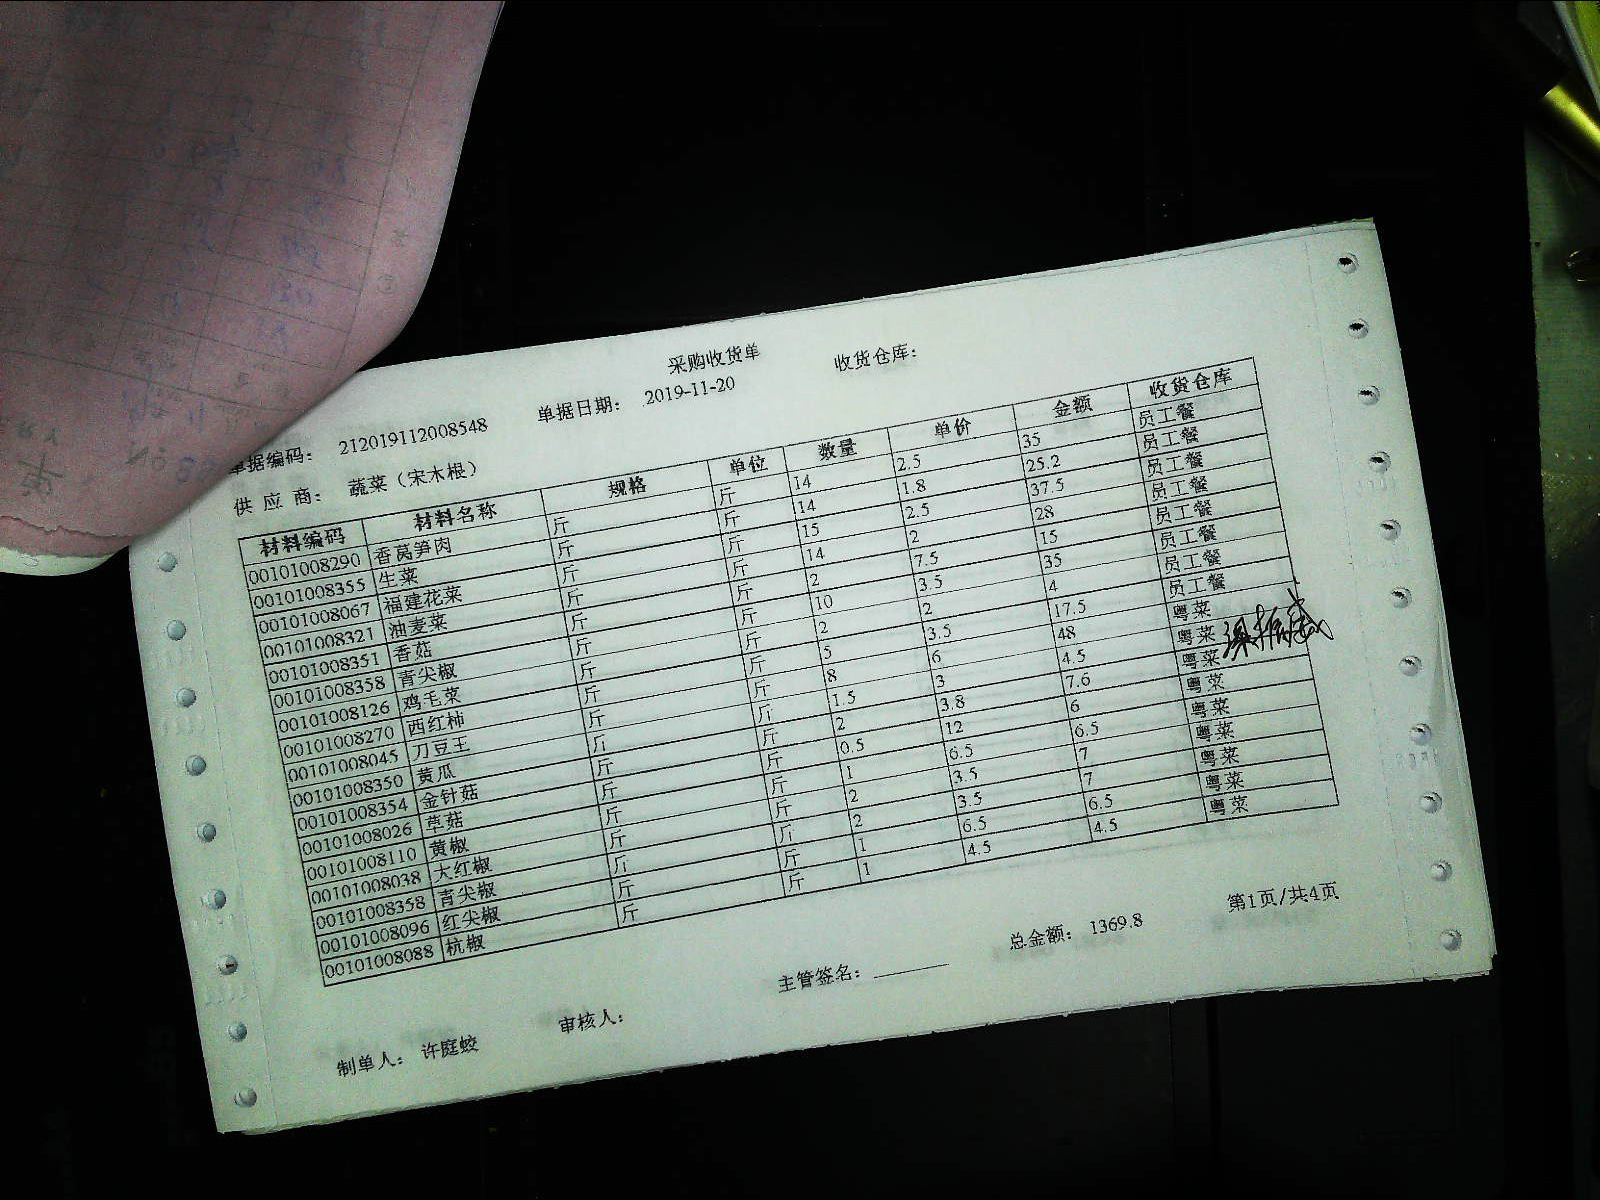 采购收货单 收货仓库：
单据编码： 212019112008548 单据日期： 2019-11-20
供 应 商： 蔬菜（宋木根）
材料编码 材料名称 规格 单位 数量 单价 金额 收货仓库
00101008290 香莴笋肉 斤 斤 14 2.5 35 员工餐
00101008355 生菜 斤 斤 14 1.8 25.2 员工餐
00101008067 福建花菜 斤 斤 15 2.5 37.5 员工餐
00101008321 油麦菜 斤 斤 14 2 28 员工餐
00101008351 香菇 斤 斤 2 7.5 15 员工餐
00101008358 青尖椒 斤 斤 10 3.5 35 员工餐
00101008126 鸡毛菜 斤 斤 2 2 4 员工餐
00101008270 西红柿 斤 斤 5 3.5 17.5 员工餐
00101008045 刀豆王 斤 斤 8 6 48 粤菜
00101008350 黄瓜 斤 斤 1.5 3 4.5 粤菜
00101008354 金针菇 斤 斤 2 3.8 7.6 粤菜
00101008026 草菇 斤 斤 0.5 12 6 粤菜
00101008110 黄椒 斤 斤 1 6.5 6.5 粤菜
00101008038 大红椒 斤 斤 2 3.5 7 粤菜
00101008358 青尖椒 斤 斤 2 3.5 7 粤菜
00101008096 红尖椒 斤 斤 1 6.5 6.5 粤菜
00101008088 杭椒 斤 斤 1 4.5 4.5 粤菜
总金额： 1369.8 第1页/共4页
制单人： 许庭蛟 审核人： 主管签名：